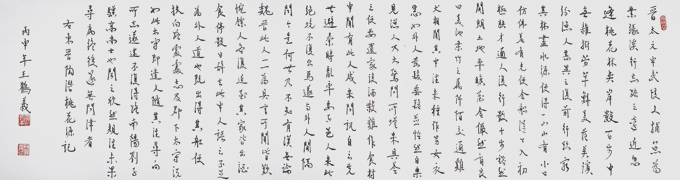 晉太元中武陵人捕魚為
業緣溪行忘路之遠近忽
逢桃花林夾岸數百步中
無雜樹芳草鮮美落英繽
紛漁人甚異之復前行欲窮
其林林盡水源便得一山山有小口
仿佛若有光便舍船從口入初
極狹才通人復行數十步豁然
開朗土地平曠屋舍儼然有良
田美池桑竹之屬阡陌交通雞
犬相聞其中往來種作男女衣
著悉如外人黃髮垂髫並怡然自樂
見漁人乃大驚問所從來具答
之便要還家設酒殺雞作食村
中聞有此人咸來問訊自云先
世避秦時亂率妻子邑人來此
絕境不復出焉遂與外人間隔
問今是何世乃不知有漢無論
魏晉此人一一為具言所聞皆歎
惋餘人各復延至其家皆出酒
食停數日辭去此中人語云不足
為外人道也既出得其船便
扶向路處處志之及郡下詣太守說
如此太守即遣人隨其往尋向
所志遂迷不復得路南陽劉子
驥高尚士也聞之欣然規往未果
尋病終後遂無問津者
右東晉陶潛桃花源記
丙申年王鶴義